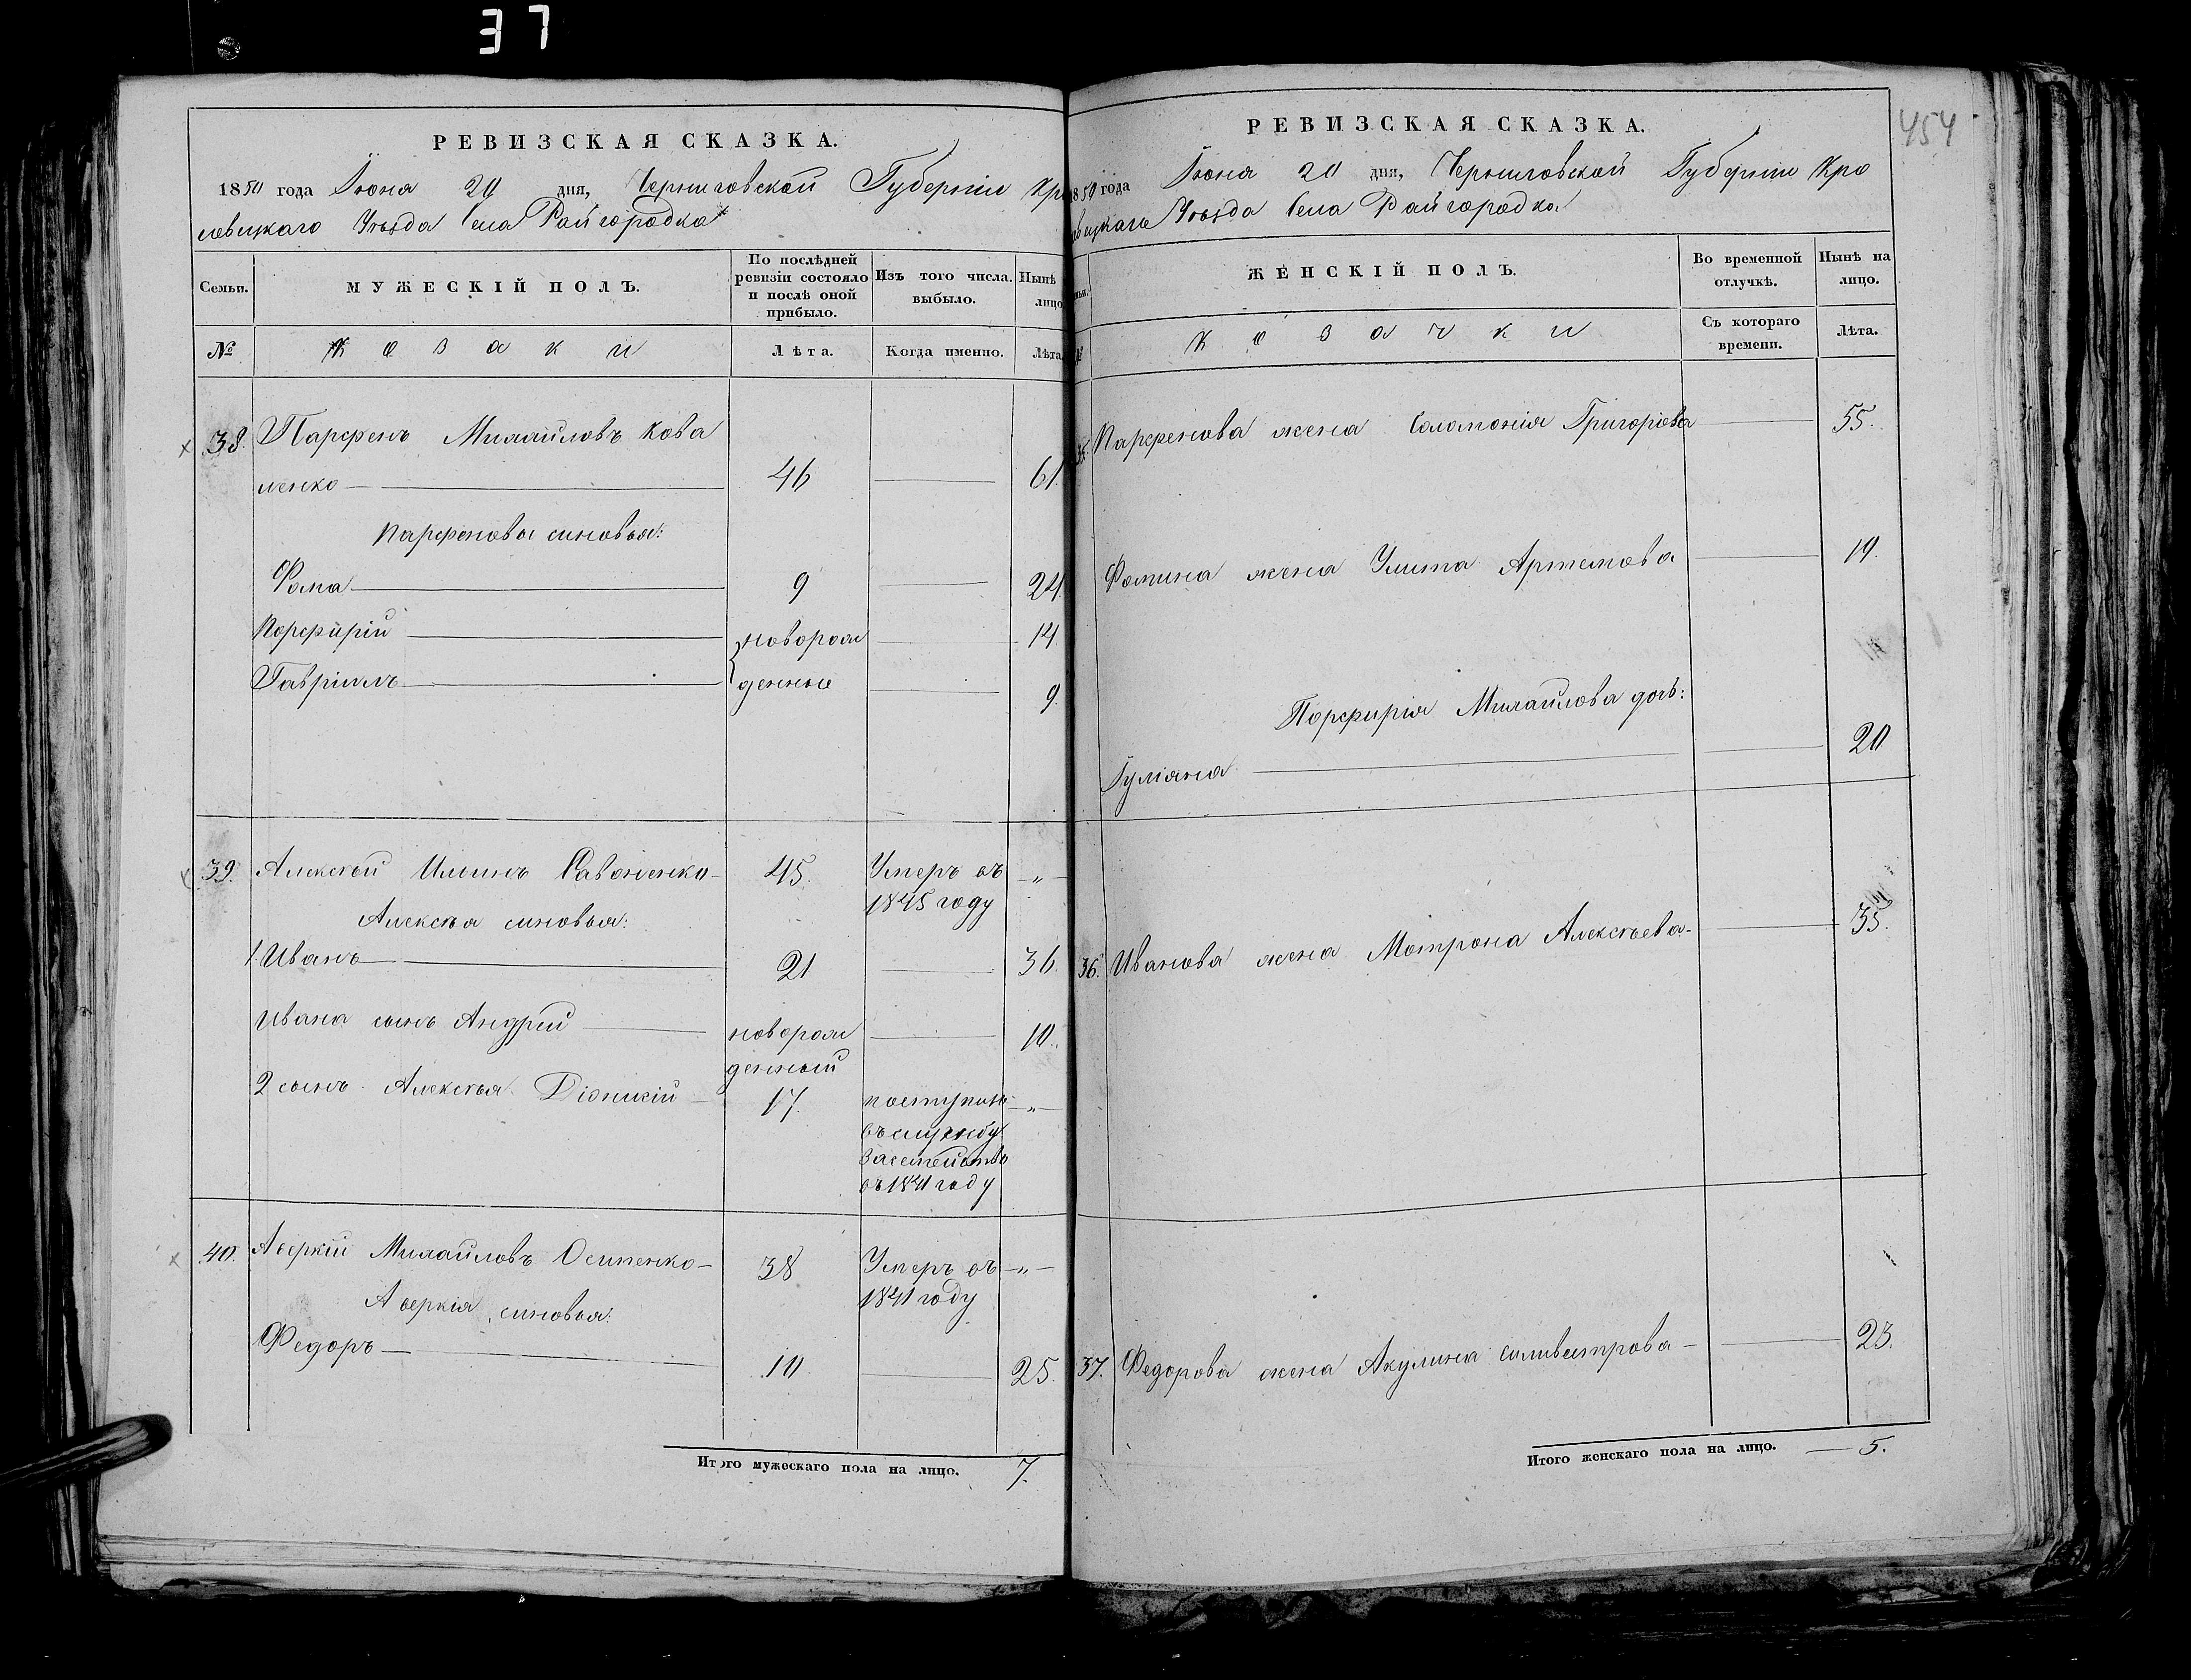 37
РЕВИЗСКАЯ СКАЗКА.
1850 года Іюня 20 дня, Черниговской Губерніи Кро
левецкаго Уѣзда Села Райгородка
Семьи.
МУЖЕСКІЙ ПОЛЪ.
По послѣдней ревизіи состояло и послѣ оной прибыло.
Изъ того числа выбыло.
Нынѣ лицо
№
Козаки
Лѣта.
Когда именно.
Лѣта.
38. Парфенъ Михайловъ Кова
ленко — 46 — 61.
Парфенова синовья:
Фома — 9 — 24.
Порфирій — новорож — 14.
Гавріилъ — денные — 9.
39. Алексѣй Ильинъ Савоненко — 45. Умеръ въ — „ —
1845 году
Алексѣя синовья:
1. Иванъ — 21 — 36.
Ивана сынъ Андрей — новорож — 10.
денный
2 сынъ Алексѣя Діонисій — 17. поступилъ — „ —
въ службу
за семейство
въ 1841 году
40. Аверкій Михайловъ Осипенко — 38 Умеръ въ — „ —
1841 году
Аверкія синовья:
Федоръ — 10 — 25.
Итого мужескаго пола на лицо. 7.
454
РЕВИЗСКАЯ СКАЗКА.
1850 года Іюня 20 дня, Черниговской Губерніи Кро
левецкаго Уѣзда Села Райгородка
ЖЕНСКІЙ ПОЛЪ.
Во временной отлучкѣ.
Нынѣ на лицо.
Козачки
Съ котораго времени.
Лѣта.
35. Парфенова жена Соломонія Григоріева — 55.
Фомина жена Улита Артемова — 19.
Порфирія Михайлова дочь:
Іуліяна — 20
36. Иванова жена Мотрона Алексѣева — 35.
37. Федорова жена Акулина Силивестрова — 23.
Итого женскаго пола на лицо. — 5.